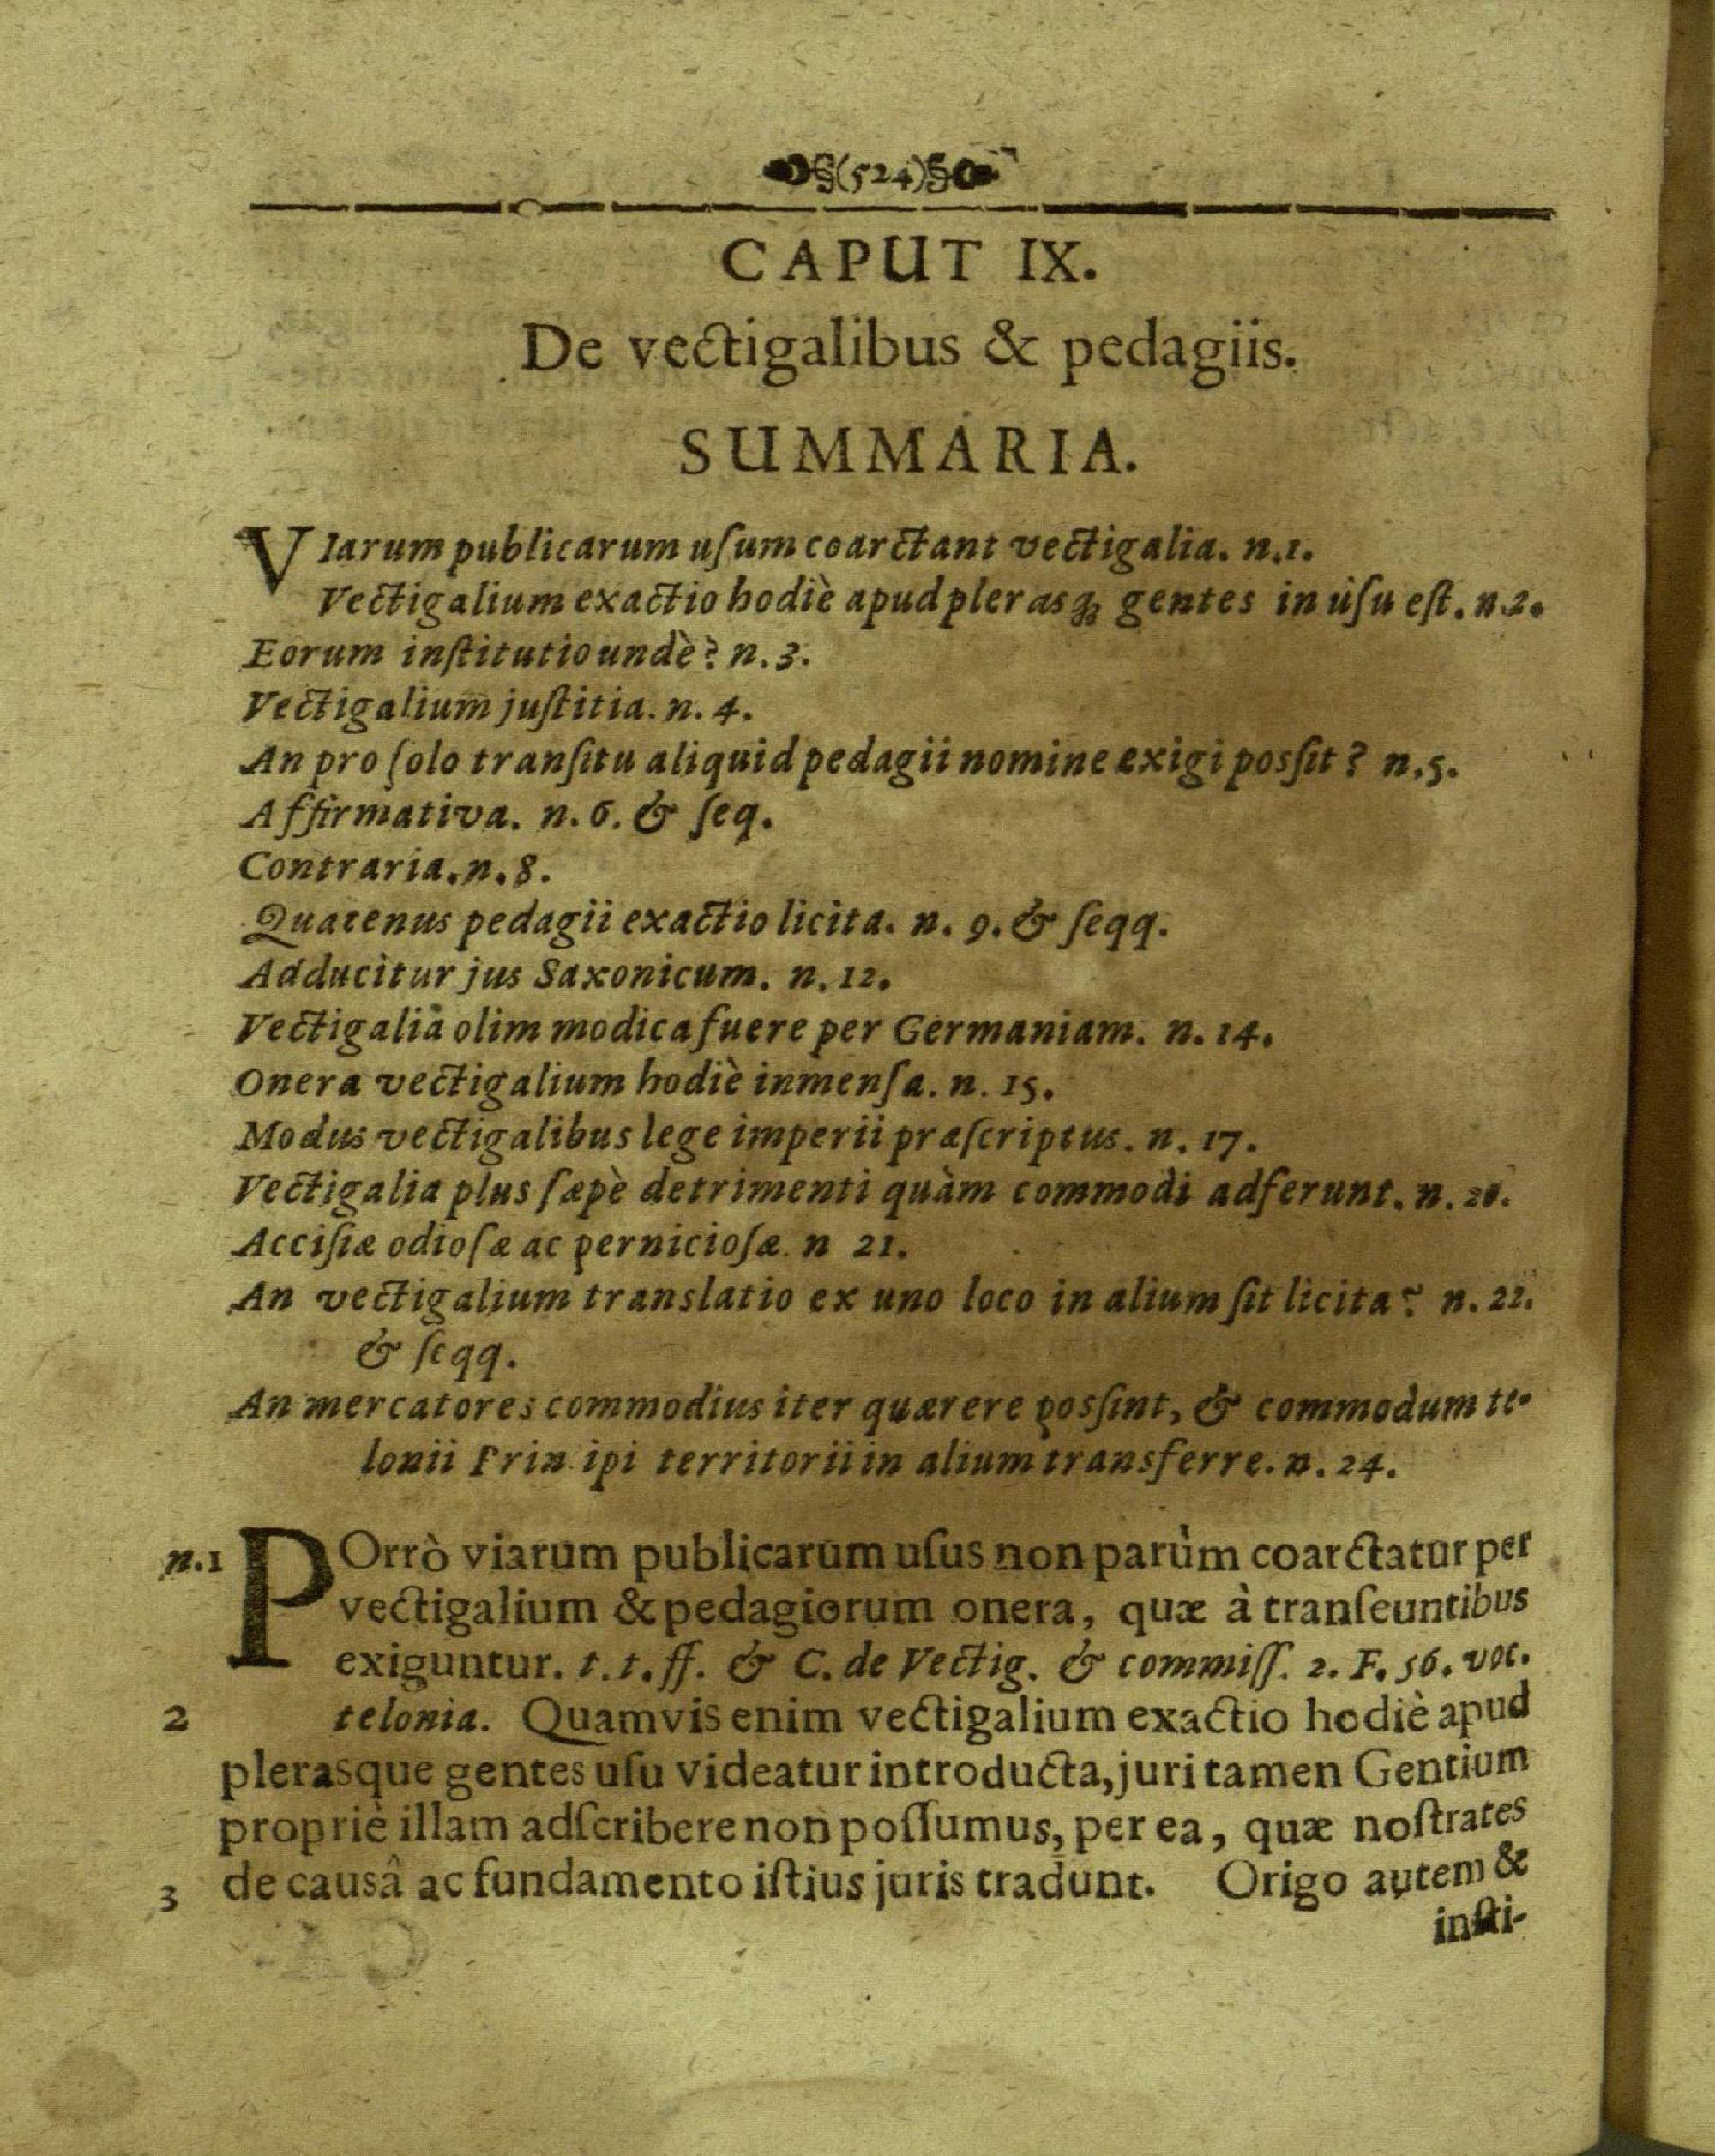 §(524)§
CAPUT IX.
De vectigalibus & pedagiis.
SUMMARIA.
VIarum publicarum uſum coarctant vectigalia. n.1.
Vectigalium exactio hodiè apud plerasq; gentes in uſu eſt. n.2.
Eorum inſtitutio undè? n.3.
Vectigalium juſtitia. n. 4.
An pro ſolo tranſitu aliquid pedagii nomine exigi posſit? n.5.
Affirmativa. n. 6. & ſeq.
Contraria. n. 8.
Quatenus pedagii exactio licita. n. 9. & ſeqq.
Adducitur jus Saxonicum. n. 12.
Vectigalia olim modica fuere per Germaniam. n. 14.
Onera vectigalium hodiè inmenſa. n. 15.
Modus vectigalibus lege imperii præſcriptus. n. 17.
Vectigalia plus ſæpè detrimenti quàm commodi adferunt. n. 20.
Acciſiæ odioſæ ac pernicioſæ. n 21.
An vectigalium translatio ex uno loco in alium ſit licita? n. 22.
& ſeqq.
An mercatores commodius iter quærere posſint, & commodum te-
lonii Prin ipi territorii in alium transferre. n. 24.
n.1 POrrò viarum publicarum uſus non parùm coarctatur per
vectigalium & pedagiorum onera, quæ à tranſeuntibus
exiguntur. t.t. ff. & C. de Vectig. & commiſſ. 2. F. 56. voc.
2 telonia. Quamvis enim vectigalium exactio hodiè apud
plerasque gentes uſu videatur introducta, juri tamen Gentium
propriè illam adſcribere non poſſumus, per ea, quæ noſtrates
3 de causâ ac fundamento iſtius juris tradunt. Origo autem &
inſti-